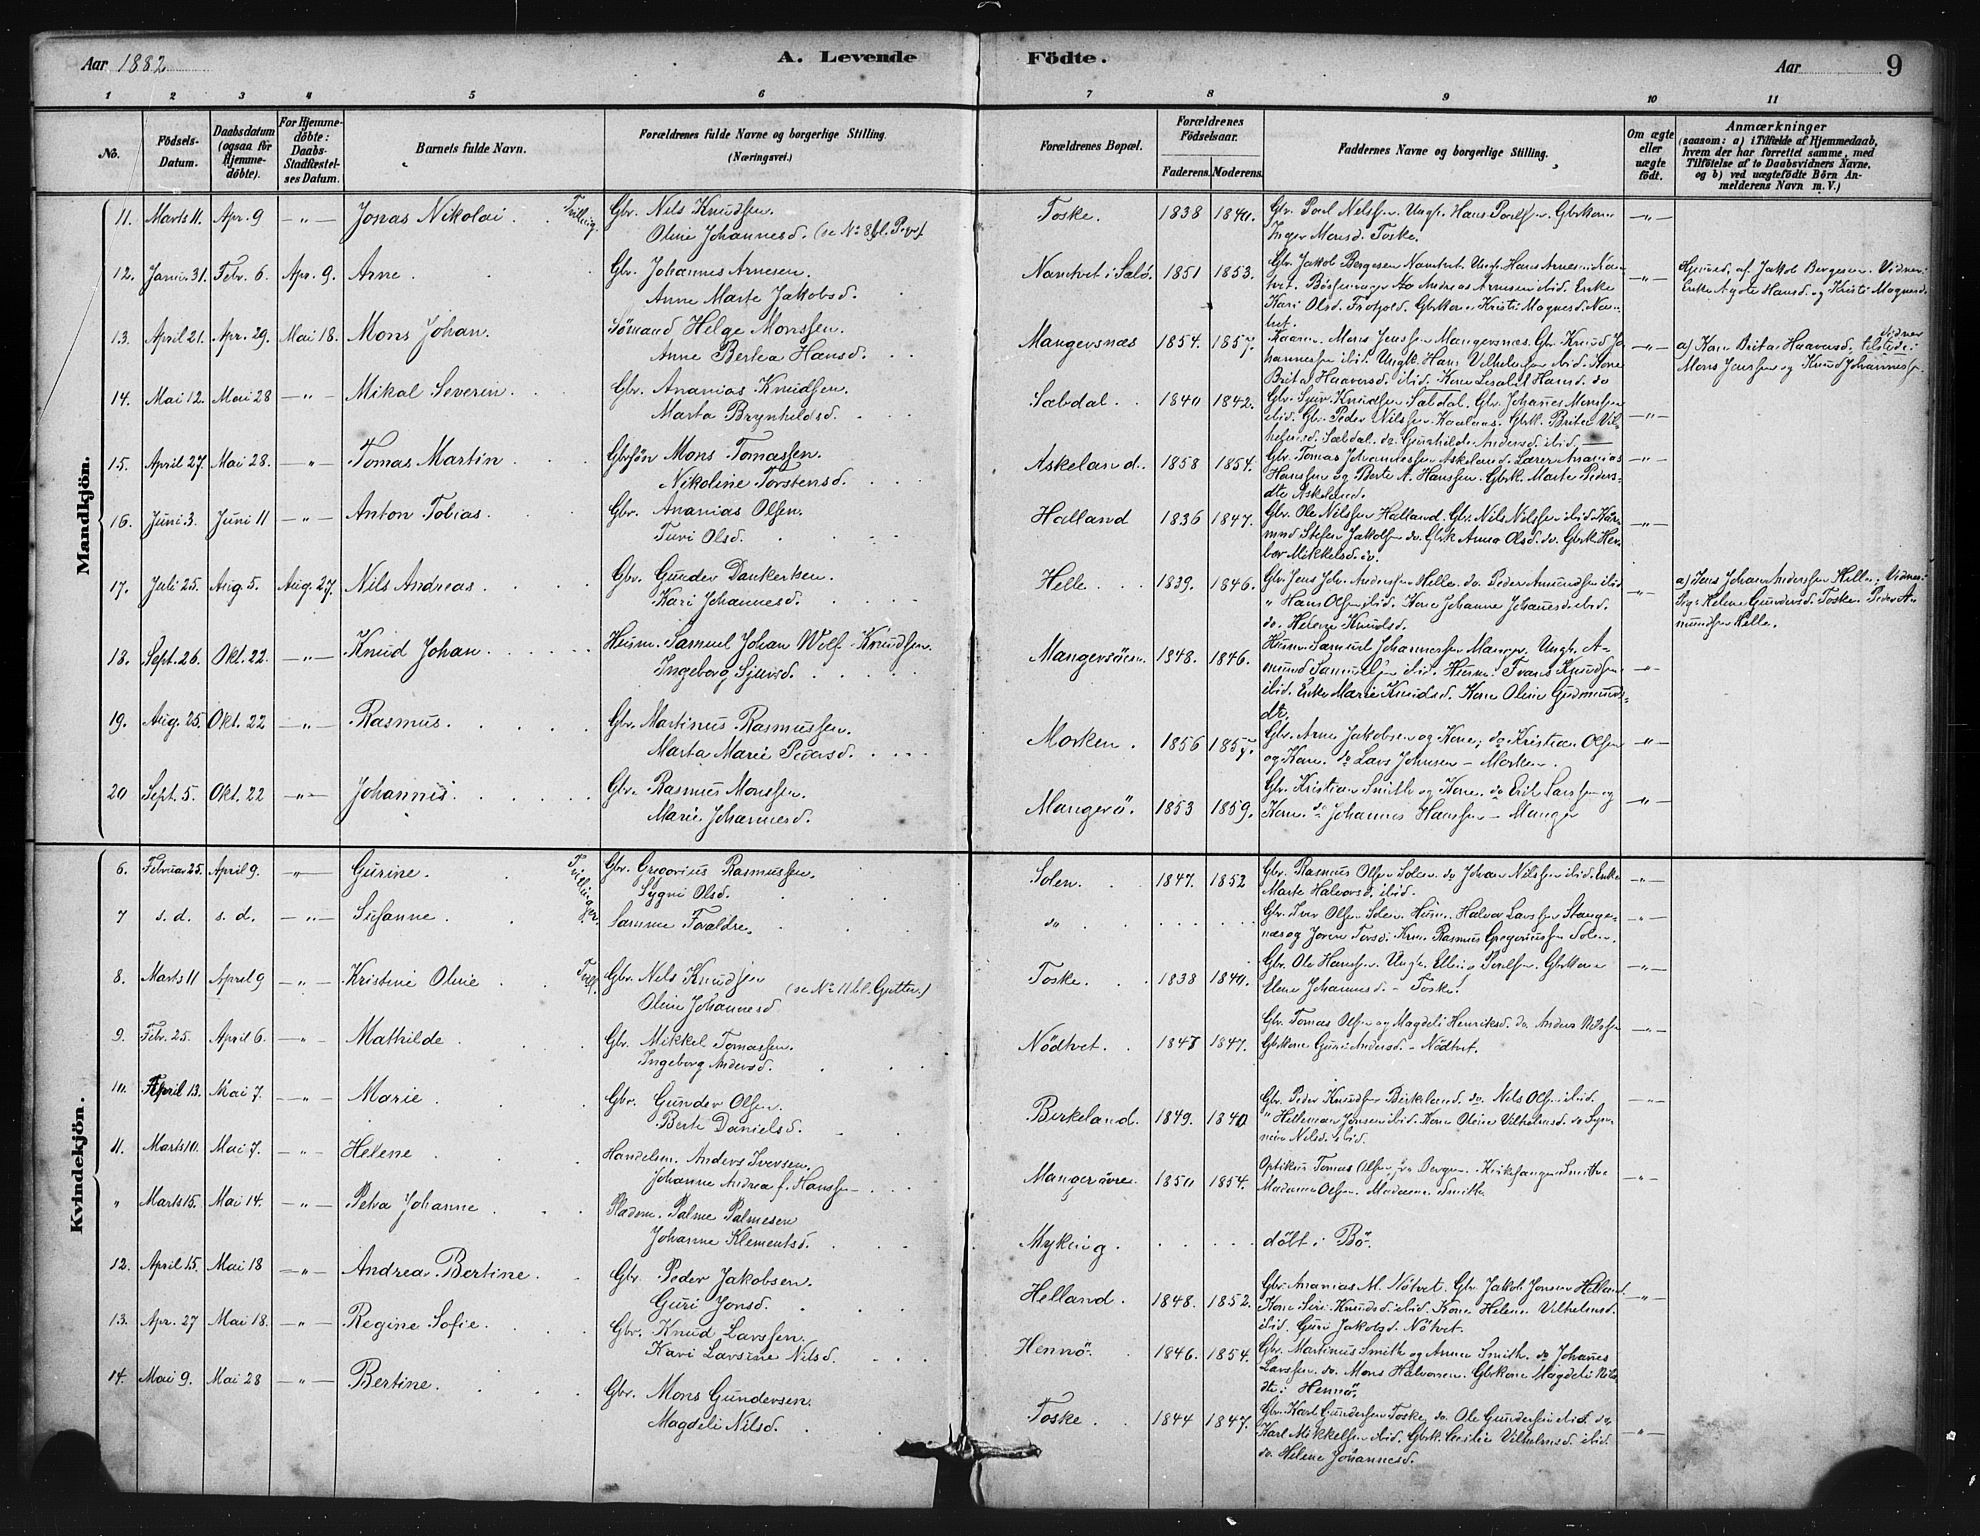 Aar 1882
A. Levende Födte.
Aar 9
1 2 3 4 5 6 7 8 9 10 11
No.
Födsels-Datum.
Daabsdatum (ogsaa för Hjemmedöbte).
For Hjemmedöbte: Daabs-Stadfæstelses Datum.
Barnets fulde Navn.
Forældrenes fulde Navne og borgerlige Stilling. (Næringsvei.)
Forældrenes Bopæl.
Forældrenes Födselsaar.
Faderens. Moderens.
Faddernes Navne og borgerlige Stilling.
Om ægte eller uægte födt.
Anmærkninger (saasom: a) i Tilfælde af Hjemmedaab, hvem der har forrettet samme, med Tilföielse af to Daabsvidners Navne, og b) ved uægtefödte Börn Anmelderens Navn m. V.)
Mandkjön.
11. Marts 11. Apr. 9 -"- Jonas Nikolai. Tvilling. Gbr. Nils Knudsen. Toske. 1838 1840. Gbr. Poul Nelssen. Ungk. Hans Poulssen. Gbrkone -"-
Oline Johannesd. Inger Monsd. Toske.
12. Januar 31. Febr. 6. Apr. 9. Arne. Gbr. Johannes Arnesen. Namtvet i Sælö. 1851 1853. Gbr. Jakob Bergesen Namtvet. Ungk. Hans Arnesen -"- Hjemmed. af Jakob Bergesen. Vidner:
Anne Marte Jakobsd. Andreas Arnesen ibid. Enke Enke Agote Hansd. og Kristi Magnesd.
Kari Olsd. Gbrkone Kristi Magnesd.
13. April 21. Apr. 29. Mai 18. Mons Johan. Sömand Helge Monssen. Mangersnæs 1854. 1857. Kaarm. Mons Jenssen Mangersnæs. Gbr. Knud Jo- -"- a) Kone Brita Haaversd. Vidner
Anne Bertea Hansd. hannessen ibid. Ungk. Hans Vilhelmsen ibid. Kone Mons Jenssen og Knud Johannessen.
Brita Haaversd. ibid. Kone Lesabet Hansd. do
14. Mai 12. Mai 28 -"- Mikal Severin. Gbr. Ananias Knudsen. Sæbdal. 1840 1842. Gbr. Sjur Knudsen Sæbdal. Gbr. Johanes Monssen -"-
Marta Brynhildsd. ibid. Gbr. Peder Nilssen Kaalaas. Gbrk. Brita Vil-
helmsd. Sæbdal. do. Gunhilde Andersd. ibid.
15. April 27. Mai 28. -"- Tomas Martin Gbrsön Mons Tomassen. Askeland. 1858 1854. Gbr. Tomas Johannessen Askeland. Lærer Ananias -"-
Nikoline Torstensd. Hanssen og Berte A. Hanssen. Gbrk. Marte Peders-
dtr Askeland.
16. Juni 3. Juni 11 -"- Anton Tobias. Gbr. Ananias Olsen. Halland 1836 1847. Gbr. Ole Nilssen Halland. Gbr. Nils Nilssen ibid. -"-
Turi Olsd. Stefen Jakobsen do. Gbrk Anna Olsd. do. Gbrk. Her-
bor Mikkelsd. do.
17. Juli 25. Aug. 5. Aug. 27. Nils Andreas. Gbr. Gunder Dankertsen. Helle. 1839. 1846. Gbr. Jens Joh. Anderssen Helle. do. Peder Amundsen ibid -"- a) Jens Johan Anderssen Helle. Vidner:
Kari Johannesd. " Hans Olsen ibid. Kone Johanne Johanesd. ibid. Pige Helene Gundersd. Toske. Peder A-
do. Helene Knudsd. mundsen Helle.
18. Sept. 26. Okt. 22. -"- Knud Johan. Husm. Samuel Johan Wolf Knudsen. Mangersöen. 1848. 1846. Husm. Samuel Johannessen Manger. Ungk. A- -"-
Ingeborg Sjursd. mund Samuelsen ibid. Husm. Frans Knudsen
ibid. Enke Marie Knudsd. Kone Oline Gudmunds-
dtr.
19. Aug. 25. Okt. 22 -"- Rasmus. Gbr. Martinus Rasmussen. Morken. 1856 1857. Gbr. Arne Jakobsen og Kone, do Kristian Olsen -"-
Marta Marie Pedersd. og Kone. do Lars Johnsen – Morken.
20 Sept. 5. Okt. 22 -"- Johannes. Gbr. Rasmus Monssen. Mangerö. 1853 1859. Gbr. Kristian Smith og Kone. do Erik Larssen og -"-
Marie Johannesd. Kone. do Johannes Hanssen – Manger
Kvindekjön.
6. Februar 25. April 9. -"- Gurine. Tvillinger. Gbr. Gregorius Rasmussen. Solen. 1847. 1852 Gbr. Rasmus Olsen Solen. do Johan Nilssen ibid. Enke -"-
Sygni Olsd. Marte Halvorsd. ibid.
7 s. d. s. d. -"- Susanne. Samme Forældre. do Gbr. Iver Olsen Solen. Husm. Halvor Larssen Stange- -"-
næs og Joren Torsd. Rasmus Gregoriussen Solen.
8. Marts 11 April 9 -"- Kristine Oline Tvill. Gbr. Nils Knudsen (se No 11 bl. Gutter.) Toske. 1838 1840. Gbr. Ole Hanssen. Ungk. Elling Poulssen. Gbrkone -"-
Oline Johannesd Johannesd. – Toske.
9. Febr. 25. April 6. -"- Mathilde Gbr. Mikkel Tomassen. Nödtvet. 1847 1847. Gbr. Tomas Olsen og Magdeli Henriksd. do. Anders Nilssen -"-
Ingeborg Andersd. Gbrkone Guri Andersd. – Nödtvet.
10. April 13. Mai 7. -"- Marie Gbr. Gunder Olsen. Birkeland. 1849. 1840 Gbr. Peder Knudsen Birkeland. do. Nils Olsen ibid. -"-
Berte Danielsd. " Helleman Jonsen ibid. Kone Oline Vilhelmsd. do Syn-
neve Nilsd. ibid.
11. Marts 10. Mai 7. -"- Helene Handelsm. Anders Iversen. Mangerövre. 1850 1854. Optikus Tomas Olsen fra Bergen. Kirkesanger Smith -"-
Johanne Andrea f. Hanssen Madame Olsen. Madame Smith.
" Marts 15. Mai 14. -"- Petra Johanne Pladsm. Palme Palmesen Myking. döbt i Bö.
Johanne Klementsd.
12. April 15. Mai 18 -"- Andrea Bertine. Gbr. Peder Jakobsen. Helland. 1848. 1852. Gbr. Ananias M. Nötvet. Gbr. Jakob Jonsen Helland -"-
Guri Jonsd. Kone Siri Knudsd. ibid. Kone Helene Vilhelmsd.
ibid. Guri Jakobsd. Nötvet.
13. Apr. 27 Mai 18. -"- Regine Sofie. Gbr. Knud Larssen. Hennö. 1846. 1854. Gbr. Martinus Smith og Anne Smith. do Johanes
Kari Larsine Nilsd. Larssen do. Mons Halvorsen. Gbrkone Magdeli Nils-
dtr i Hennö.
14. Mai 9. Mai 28 -"- Bertine. Gbr. Mons Gundersen. Toske. 1844 1847. Gbr. Karl Gundersen Toske. do. Ole Gundersen ibid. do -"-
Magdeli Nilsd. Karl Mikkelsen ibid. Gbrk. Cecilie Vilhelmsd. ibid.
do. Helene Johannesd.